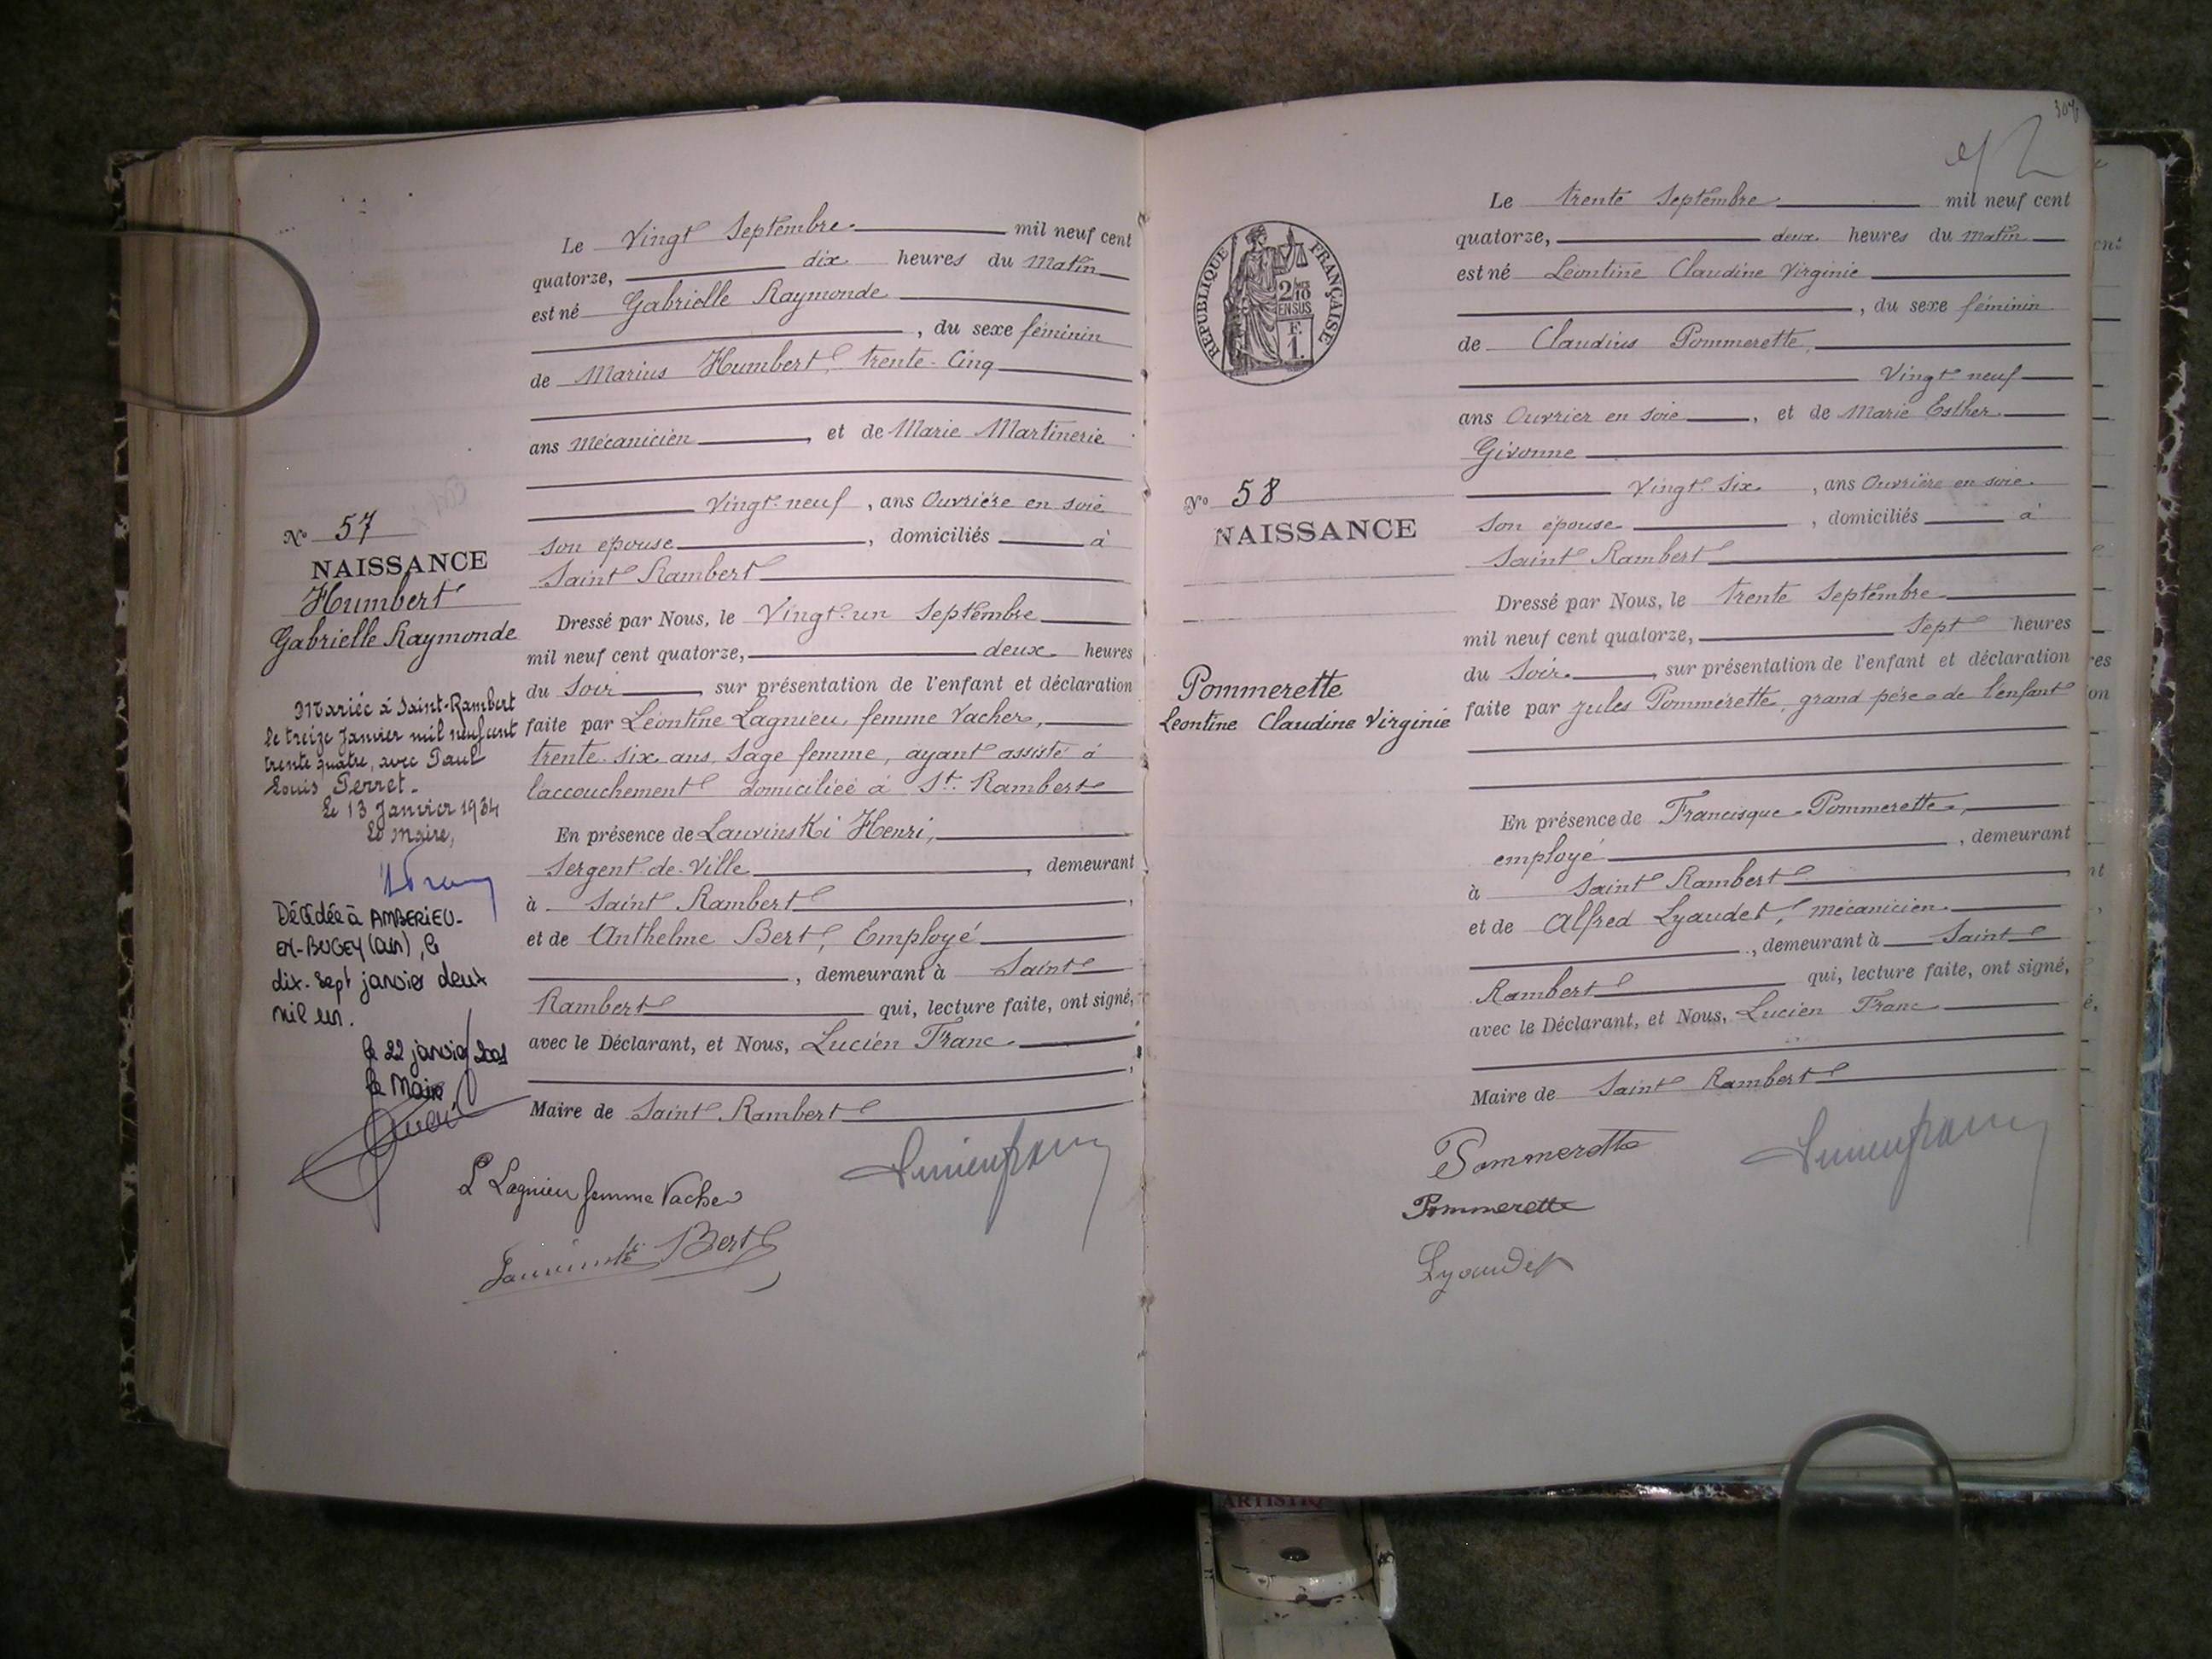 N° 57
NAISSANCE
Humbert
Gabrielle Raymonde
Mariée à Saint-Rambert
le treize Janvier mil neuf cent
trente quatre, avec Paul
Louis Perret.
Le 13 Janvier 1934
Le Maire,
Décédée à AMBERIEU-
EN-BUGEY (Ain), le
dix-sept janvier deux
mil un.
le 22 janvier 2001
le Maire
Le Vingt Septembre mil neuf cent
quatorze, dix heures du Matin
est né Gabrielle Raymonde
, du sexe féminin
de Marius Humbert, trente-Cinq
ans Mécanicien, et de Marie Martinerie
Vingt-neuf, ans Ouvrière en soie
son épouse, domiciliés à
Saint Rambert
Dressé par Nous, le Vingt-un Septembre
mil neuf cent quatorze, deux heures
du Soir, sur présentation de l'enfant et déclaration
faite par Léontine Lagnieu, femme Vacher,
trente-six ans, Sage femme, ayant assisté à
l'accouchement domiciliée à St. Rambert
En présence de Lauvinski Henri,
Sergent-de-Ville, demeurant
à Saint Rambert,
et de Anthelme Bert, Employé
, demeurant à Saint
Rambert qui, lecture faite, ont signé,
avec le Déclarant, et Nous, Lucien Franc
Maire de Saint Rambert
L Lagnieu femme Vacher
Bert
307
REPUBLIQUE FRANÇAISE
2/10
EN SUS
F.
1.
N° 58
NAISSANCE
Pommerette
Léontine Claudine Virginie
Le trente Septembre mil neuf cent
quatorze, deux heures du Matin
est né Léontine Claudine Virginie
, du sexe féminin
de Claudius Pommerette,
Vingt-neuf
ans Ouvrier en soie, et de Marie Esther
Givonne
Vingt-Six, ans Ouvrière en soie
Son épouse, domiciliés à
Saint Rambert
Dressé par Nous, le trente Septembre
mil neuf cent quatorze, Sept heures
du Soir, sur présentation de l'enfant et déclaration
faite par Jules Pommerette, grand père de l'enfant
En présence de Francisque Pommerette,
employé, demeurant
à Saint Rambert
et de Alfred Lyaudet, mécanicien
, demeurant à Saint
Rambert qui, lecture faite, ont signé,
avec le Déclarant, et Nous, Lucien Franc
Maire de Saint Rambert
Pommerette
Pommerette
Lyaudet
ARTISTIQ